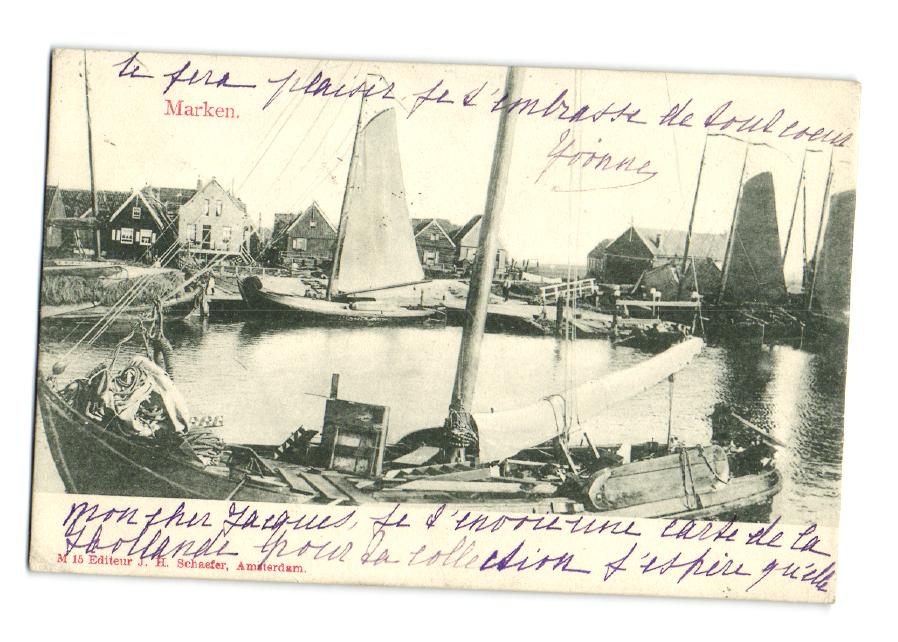 te fera plaisir je t'embrasse de tout coeur
Yvonne
Marken.
Mon cher Jacques, je t'envoie une carte de la
Hollande pour ta collection j'espère qu'elle
M 15 Editeur J. H. Schaefer, Amsterdam.